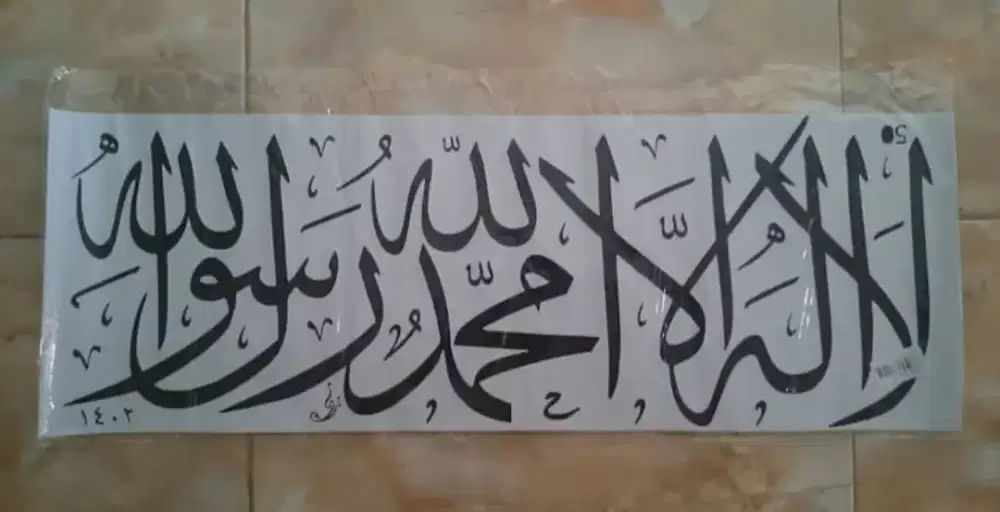 لا إله إلا الله محمد رسول الله
١٤٠٢
50